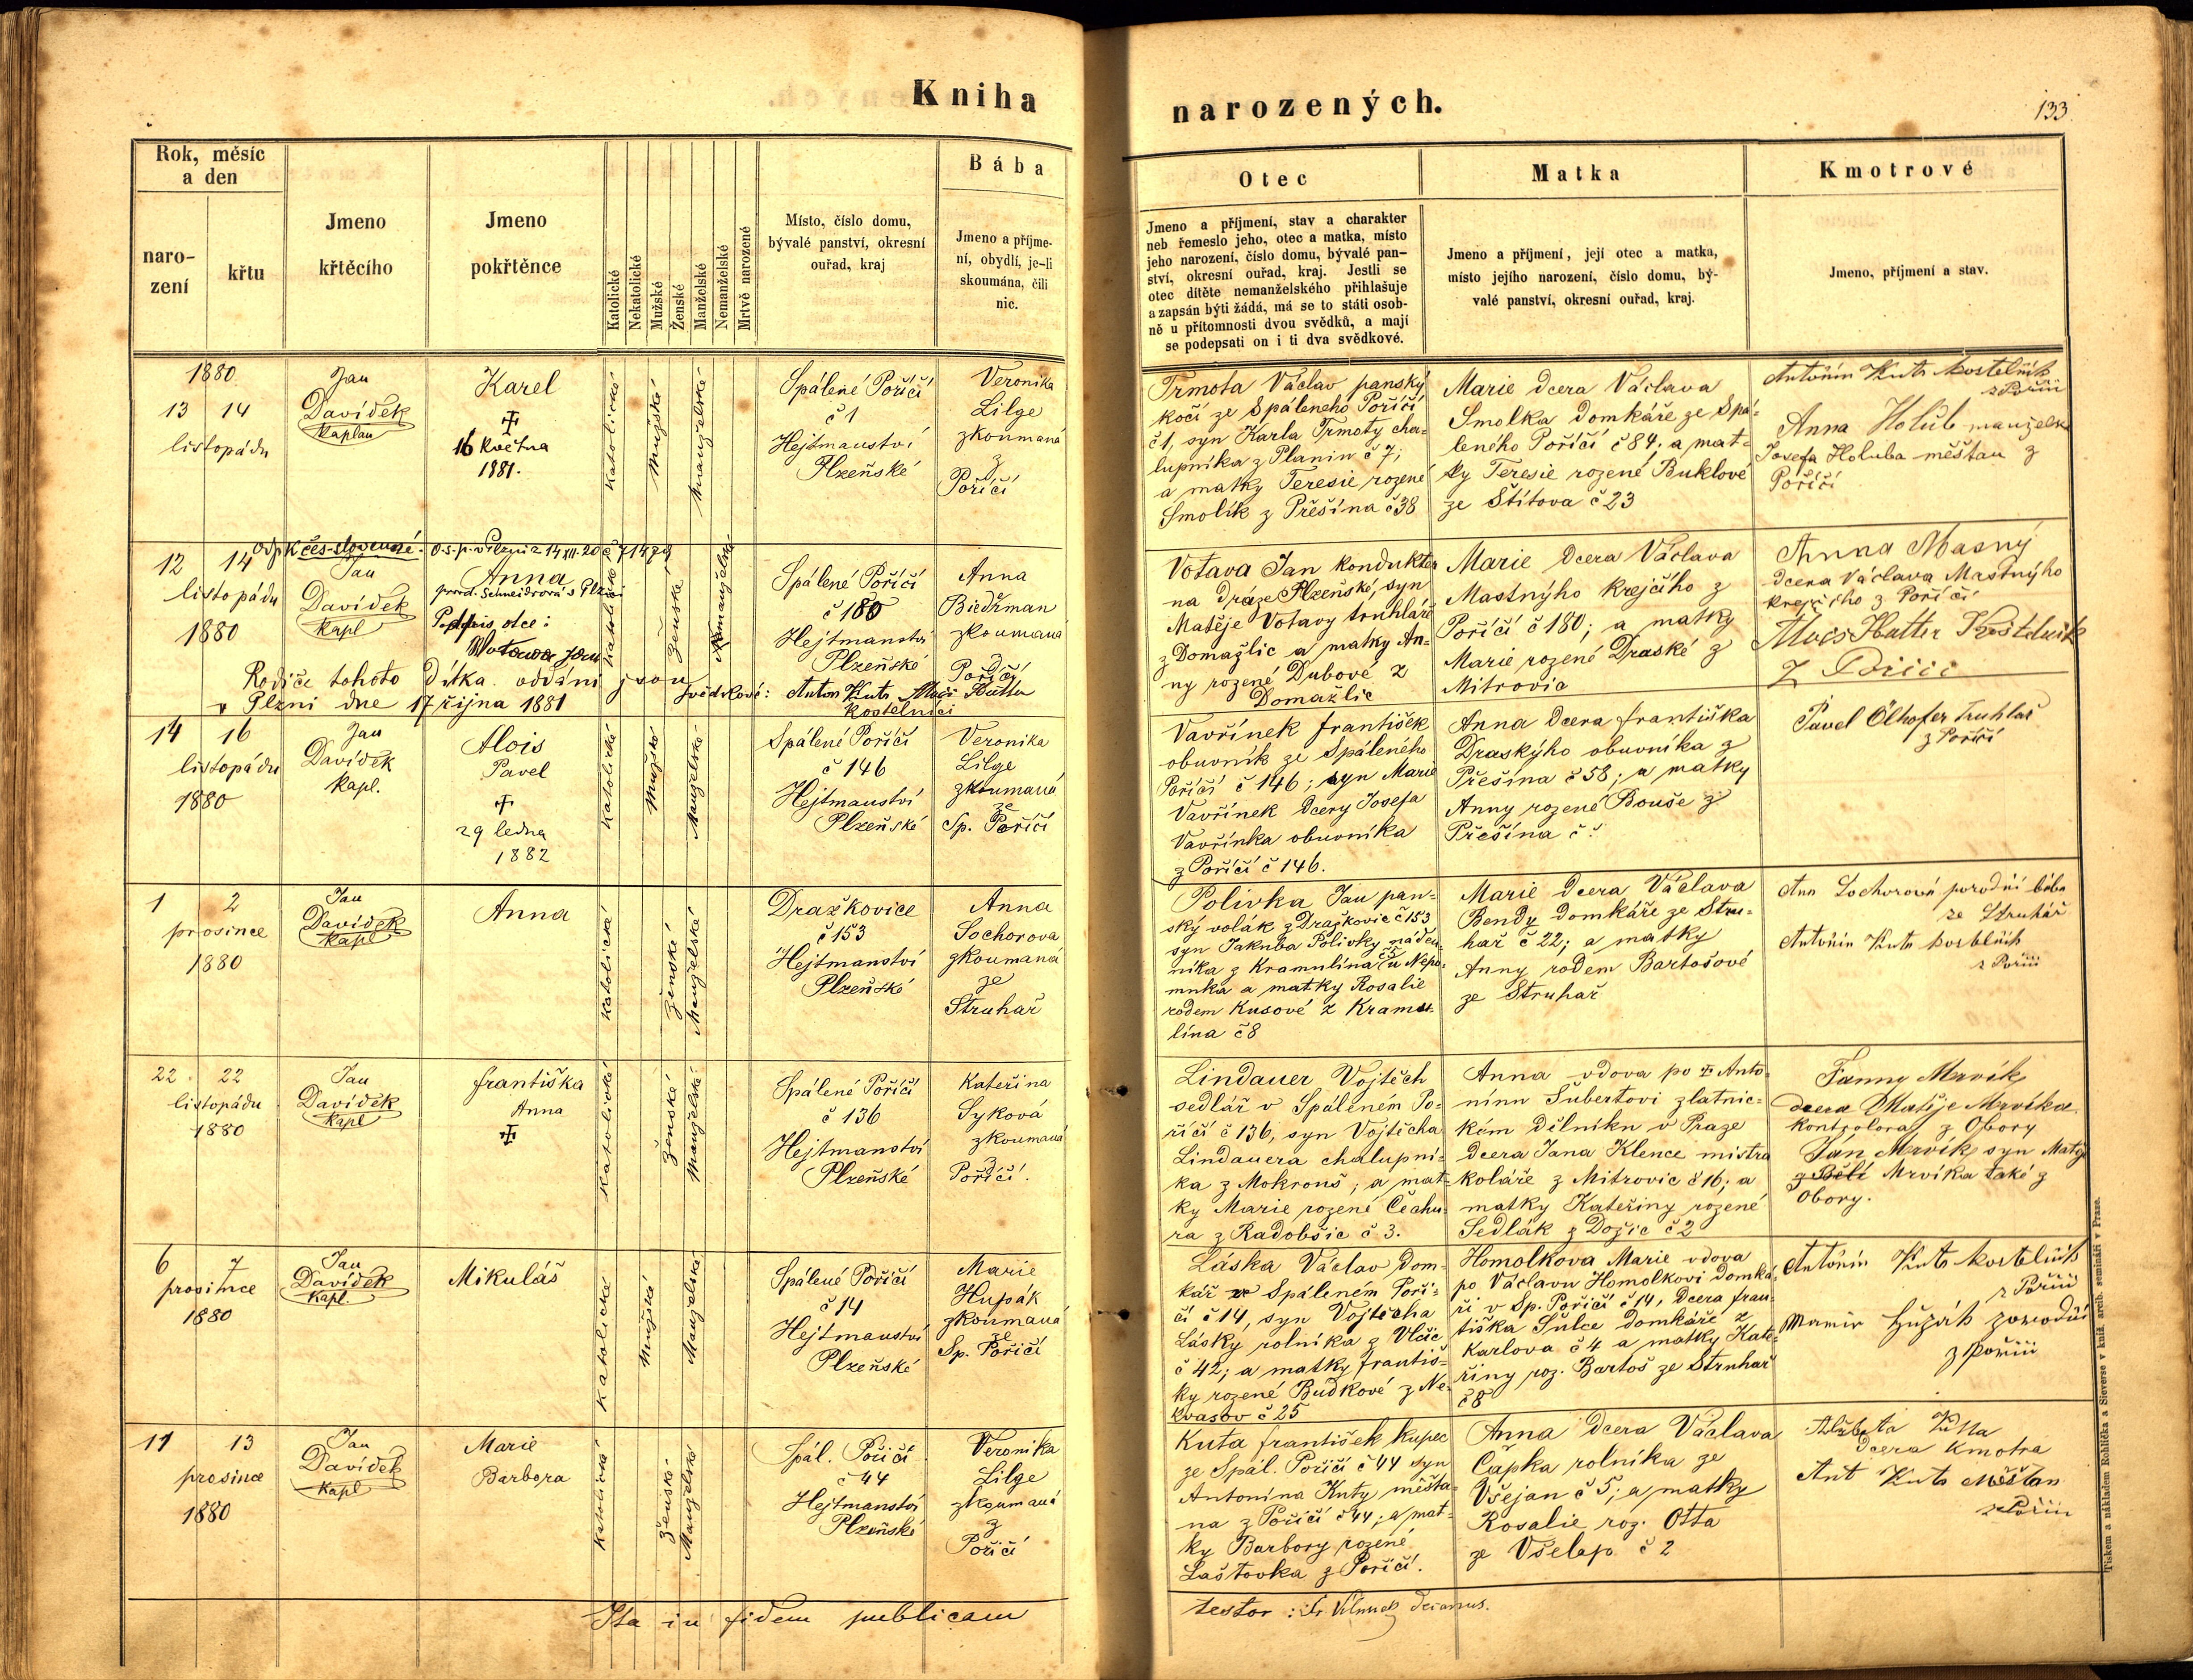 Kniha
narozených.
133
Rok, měsíc
a den
naro-
zení
křtu
Jmeno
křtěcího
Jmeno
pokřtěnce
Katolické
Nekatolické
Mužské
Ženské
Manželské
Nemanželské
Mrtvě narozené
Místo, číslo domu,
bývalé panství, okresní
ouřad, kraj
Bába
Jmeno a příjme-
ní, obydlí, je-li
skoumána, čili
nic.
Otec
Jmeno a příjmení, stav a charakter
neb řemeslo jeho, otec a matka, místo
jeho narození, číslo domu, bývalé pan-
ství, okresní ouřad, kraj. Jestli se
otec dítěte nemanželského přihlašuje
a zapsán býti žádá, má se to státi osob-
ně u přítomnosti dvou svědků, a mají
se podepsati on i ti dva svědkové.
Matka
Jmeno a příjmení, její otec a matka,
místo jejího narození, číslo domu, bý-
valé panství, okresní ouřad, kraj.
Kmotrové
Jmeno, příjmení a stav.
1880
13 14
listopádu
Jan
Davídek
Kaplan
Karel
16 Května
1881.
Katolické
Mužské
Manželské
Spálené Poříčí
č 1
Hejtmanství
Plzeňské
Veronika
Lilge
zkoumaná
z
Poříčí
Trmota Václav panský
kočí ze Spáleneho Poříčí
č 1, syn Karla Trmoty cha=
lupníka z Planin č 7;
a matky Teresie rozené
Smolík z Přešína č 38
Marie dcera Václava
Smolka domkáře ze Spá=
leného Poříčí č 84; a mat=
ky Teresie rozené Buklové
ze Štítova č 23
Antonín Kuta kostelník
z Poříčí
Anna Holub manželka
Josefa Holuba měšťan z
Poříčí
12 14
listopádu
1880
čes-slovenské
Jan
Davídek
Kapl
Anna
Schneidrová v Plzni
Podpis otce:
Votava Jan
Katolické
Ženské
Nemanželské
Spálené Poříčí
č 180
Hejtmanství
Plzeňské
Anna
Biedrman
zkoumaná
z
Poříčí
Rodiče tohoto dítka oddáni jsou
v Plzni dne 17 října 1881
Svědkové: Anton Kuta
kostelníci
Votava Jan kondukter
na dráze Plzeňské, syn
Matěje Votavy truhláře
z Domažlic a matky An=
ny rozené Dubové z
Domažlic
Marie dcera Václava
Mastnýho krejčího z
Poříčí č 180; a matky
Marie rozené Draské z
Mitrovic
Anna Masný
dcera Václava Mastnýho
krejčího z Poříčí
z Poříčí
14 16
listopádu
1880
Jan
Davídek
Kapl.
Alois
Pavel
29 ledna
1882
Katolické
Mužské
Manželské
Spálené Poříčí
č 146
Hejtmanství
Plzeňské
Veronika
Lilge
zkoumaná
ze
Sp. Poříčí
Vavřínek František
obuvník ze Spáleného
Poříčí č 146; syn Marie
Vavřínek dcery Josefa
Vavřínka obuvníka
z Poříčí č 146.
Anna dcera Františka
Draskýho obuvníka z
Přešína č 58; a matky
Anny rozené Bouše z
Přešína č
Pavel Ölhofer truhlář
z Poříčí
1 2
prosince
1880
Jan
Davídek
Kapl
Anna
Katolická
Ženské
Manželské
Dražkovice
č 153
Hejtmanství
Plzeňské
Anna
Sochorova
zkoumaná
ze
Struhař
Polivka Jan pan=
ský volák z Dražkovic č 153
syn Jakuba Polivky náden=
níka z Kramulína u Nepo=
muka a matky Rosalie
rodem Kusové z Kramu=
lína č 8
Marie dcera Václava
Bendy domkáře ze Stru=
hař č 22; a matky
Anny rodem Bartošové
ze Struhař
Ann Sochorová porodní bába
ze Struhář
Antonín Kuta kostelník
z Poříčí
22 22
listopádu
1880
Jan
Davídek
Kapl
Františka
Anna
Katolické
Ženské
Manželské
Spálené Poříčí
č 136
Hejtmanství
Plzeňské
Kateřina
Syková
zkoumaná
z
Poříčí.
Lindauer Vojtěch
sedlář v Spáleném Po=
říčí č 136, syn Vojtěcha
Lindauera chalupní=
ka z Mokrouš; a mat=
ky Marie rozené Čechu=
ra z Radobšic č 3.
Anna vdova po Anto=
nínu Šubertovi zlatnic=
kém dělníku v Praze
dcera Jana Klence mistra
koláře z Mitrovic č 16; a
matky Kateřiny rozené
Sedlák z Dožic č 2
Fanny Mrvík
dcera Matěje Mrvíka
kontrolora z Obory
Ján Mrvík syn Matěje
z Bělé Mrvíka také z
Obory.
6 7
prosince
1880
Jan
Davídek
Kapl.
Mikuláš
Katolické
Mužské
Manželské
Spálené Poříčí
č 14
Hejtmanství
Plzeňské
Marie
Hupák
zkoumaná
ze
Sp. Poříčí
Láska Václav dom=
kář ve Spáleném Poří=
čí č 14, syn Vojtěcha
Lásky rolníka z Vlčic
č 42; a matky Františ=
ky rozené Budkové z Ne=
kvasov č 25
Homolkova Marie vdova
po Václavu Homolkovi domká=
ři v Sp. Poříčí č 14, dcera Fran=
tiška Šulce domkáře z
Karlova č 4 a matky Kate=
řiny roz. Bartoš ze Struhař
č 8
Antonín Kuta kostelník
z Poříčí
z Poříčí
11 13
prosince
1880
Jan
Davídek
Kapl
Marie
Barbora
Katolické
Ženské
Manželské
Spál. Poříčí
č 44
Hejtmanství
Plzeňské
Veronika
Lilge
zkoumaná
z
Poříčí
Kuta František kupec
ze Spál. Poříčí č 44 syn
Antonína Kuty měšťa=
na z Poříčí č 44; a mat=
ky Barbory rozené
Laštovka z Poříčí.
Anna dcera Václava
Čapka rolníka ze
Všejan č 5; a matky
Rosalie roz. Otta
ze Všelap č 2
Alžběta Kuta
dcera kmotra
Ant Kuta Měšťan
z Poříčí
Ita in fidem publicam
testor :
Tiskem a nákladem Rohlíčka a Sieverse v kníž. arcib. semináři v Praze.